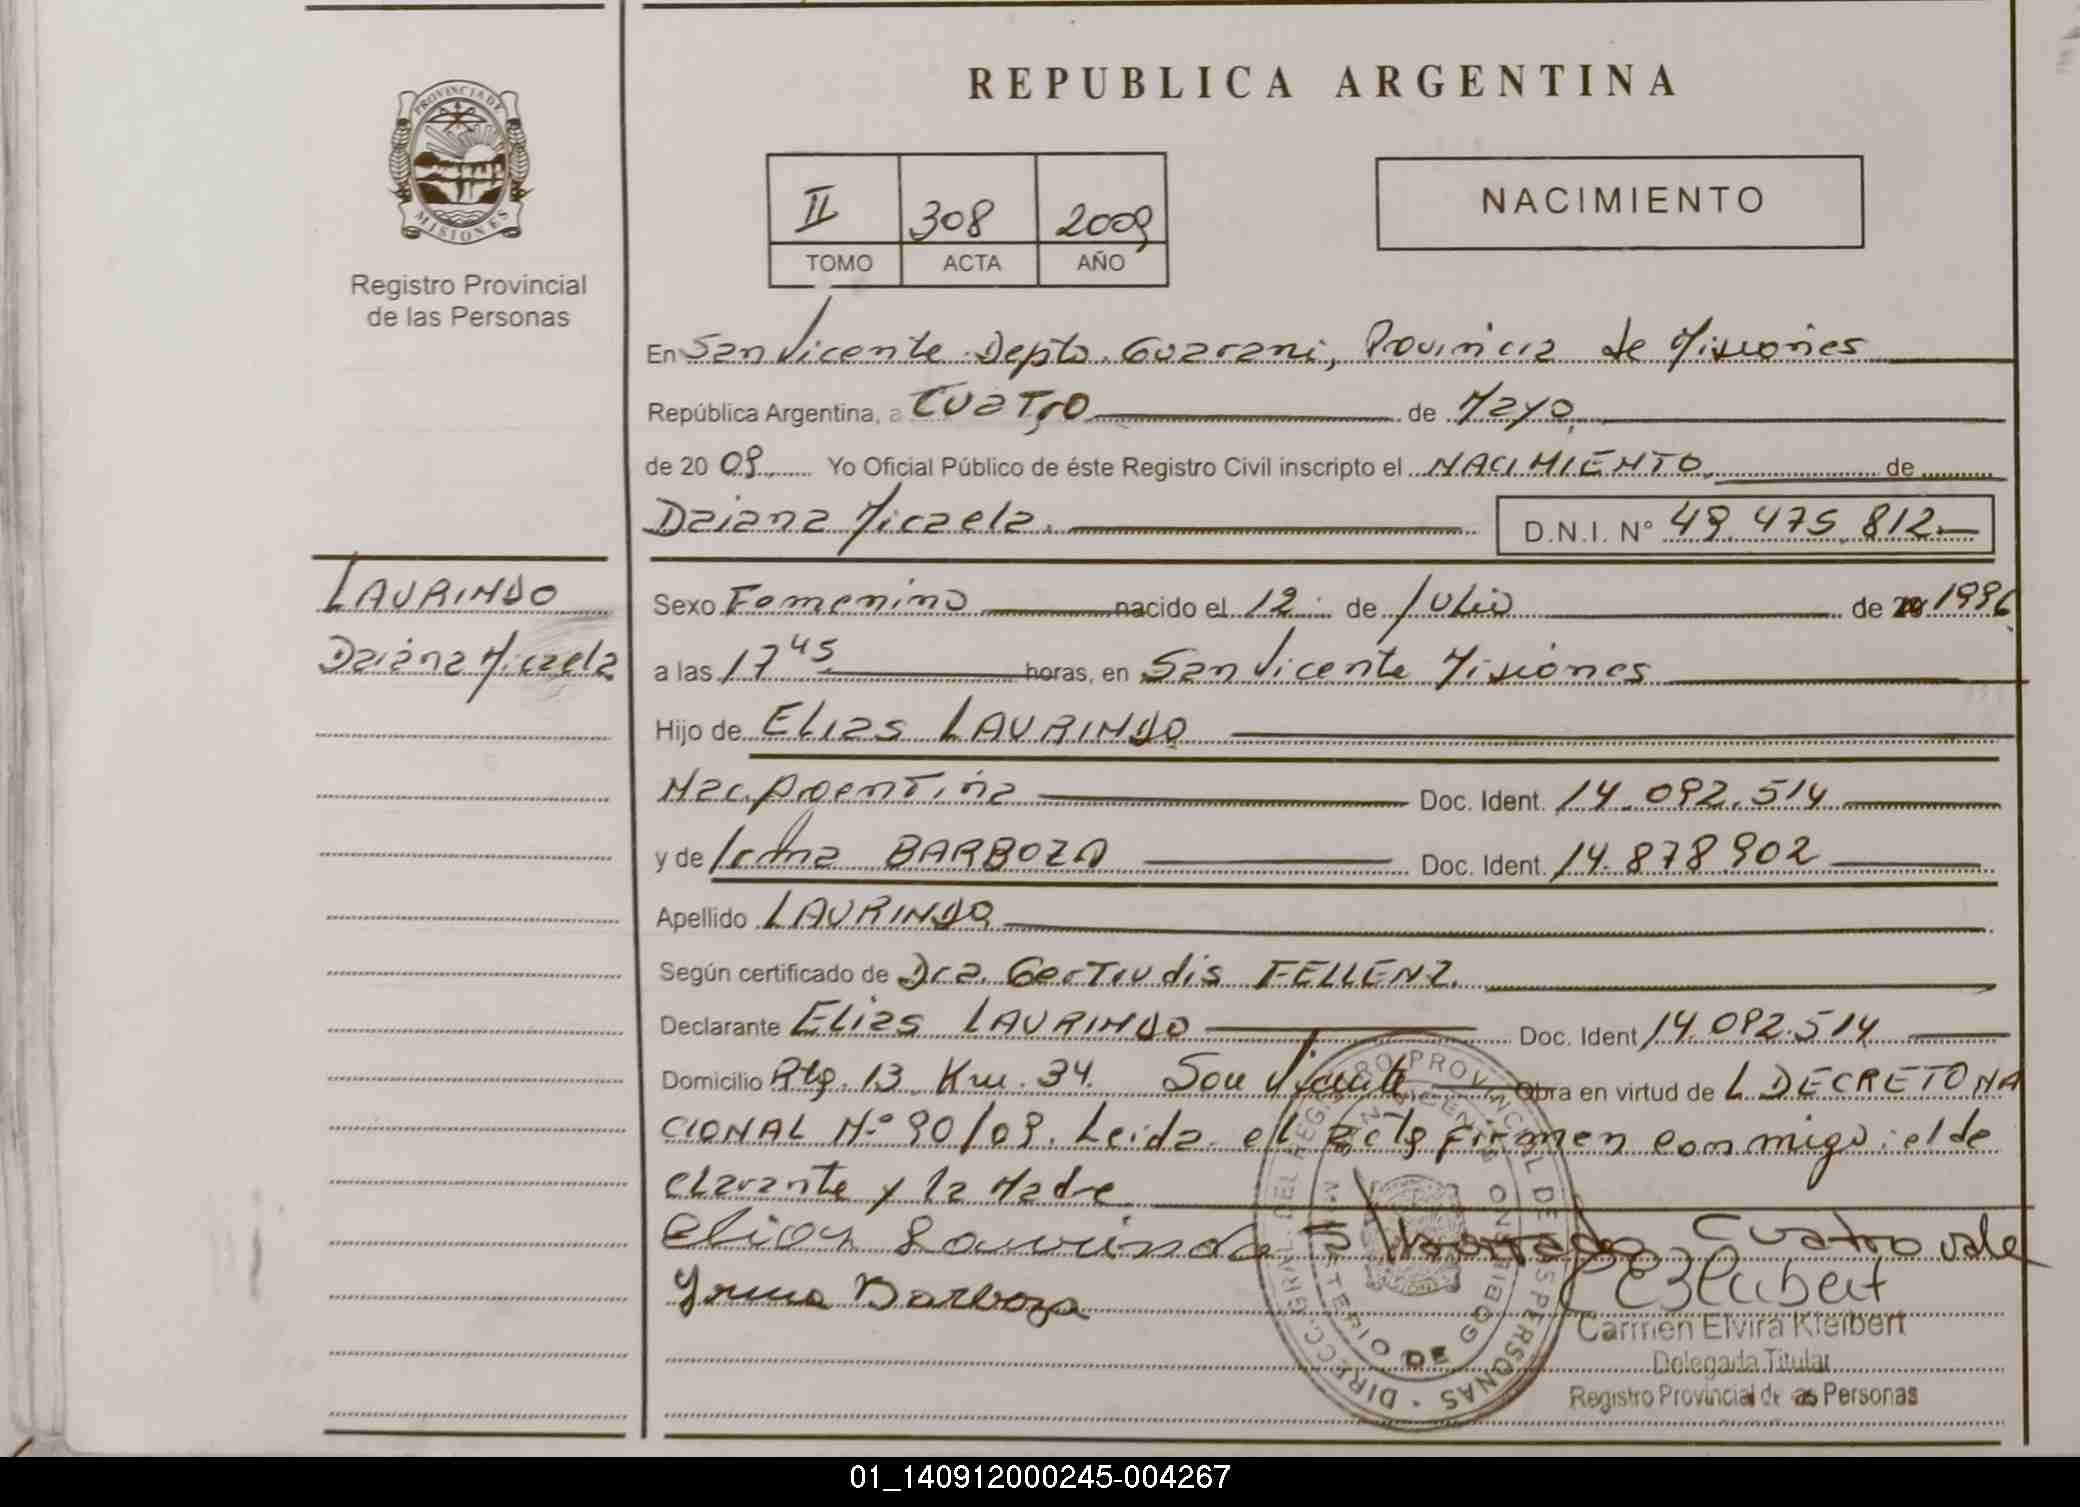 REPUBLICA ARGENTINA
PROVINCIA DE
MISIONES
Registro Provincial
de las Personas
II 308 2009
TOMO ACTA AÑO
NACIMIENTO
En San Vicente Depto. Guarani, Provincia de Misiones
República Argentina, a Cuatro de Mayo
de 20 09 Yo Oficial Público de éste Registro Civil inscripto el NACIMIENTO de
Daiana Micaela. D.N.I. Nº 49.475.812
LAURINDO
Daiana Micaela
Sexo Femenino nacido el 12 de Julio de 20 1996
a las 17 45 horas, en San Vicente Misiones
Hijo de Elias LAURINDO
Nac. Argentina Doc. Ident. 14.092.514
y de Irma BARBOZA Doc. Ident. 14.878.902
Apellido LAURINDO
Según certificado de Dra. Gertrudis FELLENZ.
Declarante Elias LAURINDO Doc. Ident 14.092.514
Domicilio Rta. 13 Km. 34. San Vicente Obra en virtud de L DECRETO NA
CIONAL Nº 90/09. Leida el acta firman conmigo: el de
clarante y la Madre
Elias Laurindo Cuatro vale
Yrma Barboza
Carmen Elvira Kleibert
Delegada Titular
Registro Provincial de las Personas
DIRECC. GRAL. DEL REGISTRO PROVINCIAL DE LAS PERSONAS
MINISTERIO DE GOBIERNO
01_140912000245-004267